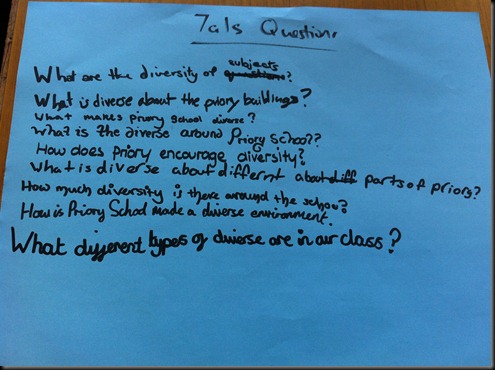 7a1s Questions
What are the diversity of subjects?
What is diverse about the priory buildings?
What makes priory school diverse?
What is the diverse around Priory School??
How does priory encourage diversity?
What is diverse about differnt parts of priory?
How much diversity is there around the school?
How is Priory School made a diverse environment.
What different types of diverse are in our class?